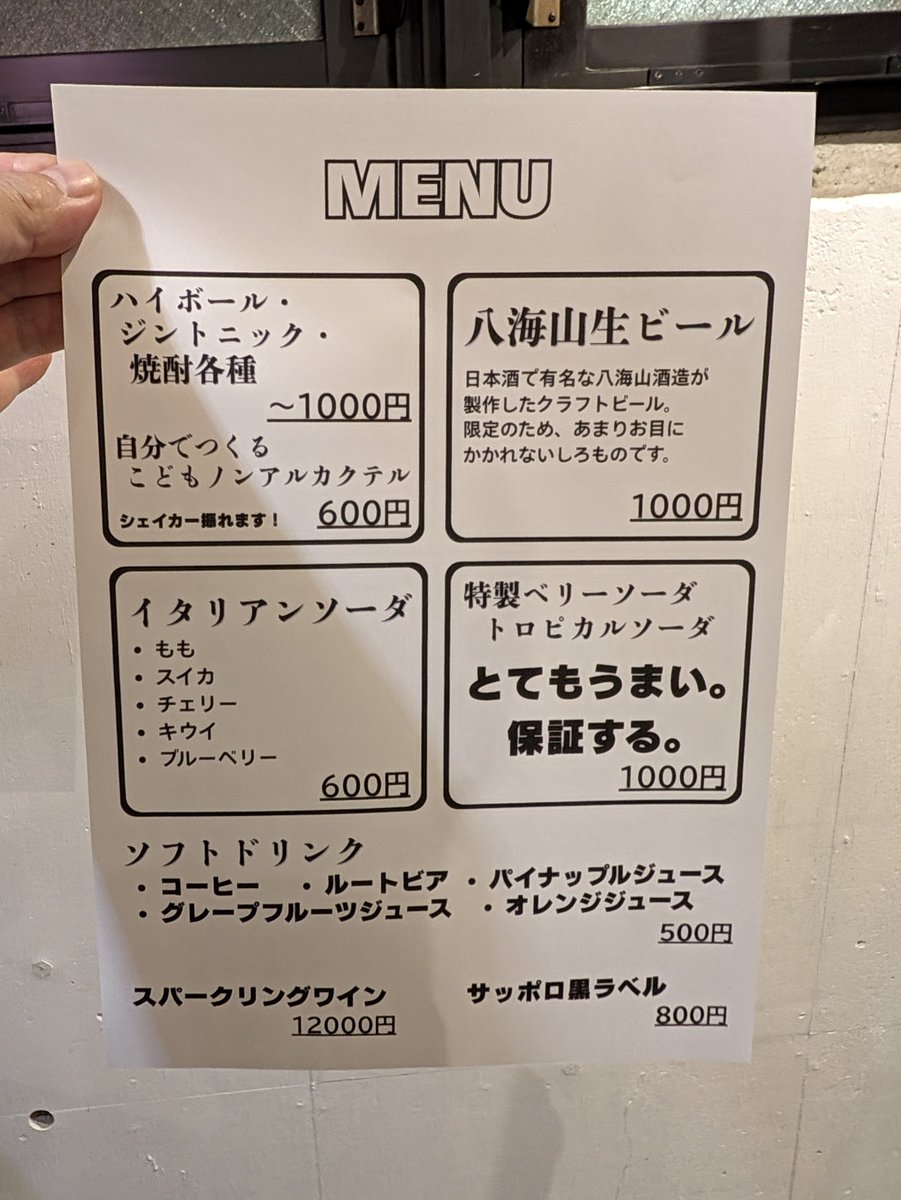 MENU
ハイボール・
ジントニック・
焼酎各種
～1000円
自分でつくる
こどもノンアルカクテル
シェイカー振れます！ 600円
八海山生ビール
日本酒で有名な八海山酒造が
製作したクラフトビール。
限定のため、あまりお目に
かかれないしろものです。
1000円
イタリアンソーダ
• もも
• スイカ
• チェリー
• キウイ
• ブルーベリー
600円
特製ベリーソーダ
トロピカルソーダ
とてもうまい。
保証する。
1000円
ソフトドリンク
• コーヒー • ルートビア • パイナップルジュース
• グレープフルーツジュース • オレンジジュース
500円
スパークリングワイン
12000円
サッポロ黒ラベル
800円